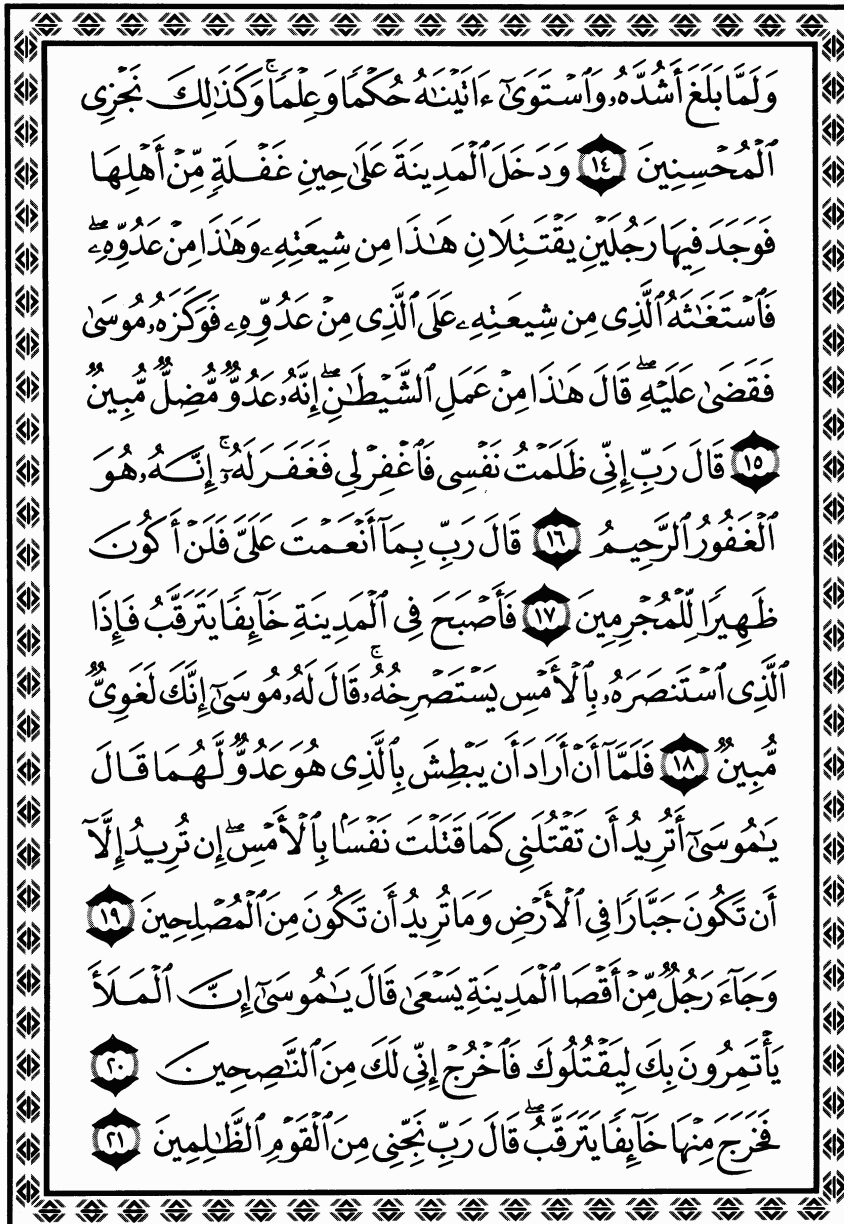 وَلَمَّا بَلَغَ أَشُدَّهُۥ وَٱسۡتَوَىٰٓ ءَاتَيۡنَٰهُ حُكۡمٗا وَعِلۡمٗاۚ وَكَذَٰلِكَ نَجۡزِي
ٱلۡمُحۡسِنِينَ ١٤ وَدَخَلَ ٱلۡمَدِينَةَ عَلَىٰ حِينِ غَفۡلَةٖ مِّنۡ أَهۡلِهَا
فَوَجَدَ فِيهَا رَجُلَيۡنِ يَقۡتَتِلَانِ هَٰذَا مِن شِيعَتِهِۦ وَهَٰذَا مِنۡ عَدُوِّهِۦۖ
فَٱسۡتَغَٰثَهُ ٱلَّذِي مِن شِيعَتِهِۦ عَلَى ٱلَّذِي مِنۡ عَدُوِّهِۦ فَوَكَزَهُۥ مُوسَىٰ
فَقَضَىٰ عَلَيۡهِۖ قَالَ هَٰذَا مِنۡ عَمَلِ ٱلشَّيۡطَٰنِۖ إِنَّهُۥ عَدُوّٞ مُّضِلّٞ مُّبِينٞ
١٥ قَالَ رَبِّ إِنِّي ظَلَمۡتُ نَفۡسِي فَٱغۡفِرۡ لِي فَغَفَرَ لَهُۥٓۚ إِنَّهُۥ هُوَ
ٱلۡغَفُورُ ٱلرَّحِيمُ ١٦ قَالَ رَبِّ بِمَآ أَنۡعَمۡتَ عَلَيَّ فَلَنۡ أَكُونَ
ظَهِيرٗا لِّلۡمُجۡرِمِينَ ١٧ فَأَصۡبَحَ فِي ٱلۡمَدِينَةِ خَآئِفٗا يَتَرَقَّبُ فَإِذَا
ٱلَّذِي ٱسۡتَنصَرَهُۥ بِٱلۡأَمۡسِ يَسۡتَصۡرِخُهُۥۚ قَالَ لَهُۥ مُوسَىٰٓ إِنَّكَ لَغَوِيّٞ
مُّبِينٞ ١٨ فَلَمَّآ أَنۡ أَرَادَ أَن يَبۡطِشَ بِٱلَّذِي هُوَ عَدُوّٞ لَّهُمَا قَالَ
يَٰمُوسَىٰٓ أَتُرِيدُ أَن تَقۡتُلَنِي كَمَا قَتَلۡتَ نَفۡسَۢا بِٱلۡأَمۡسِۖ إِن تُرِيدُ إِلَّآ
أَن تَكُونَ جَبَّارٗا فِي ٱلۡأَرۡضِ وَمَا تُرِيدُ أَن تَكُونَ مِنَ ٱلۡمُصۡلِحِينَ ١٩
وَجَآءَ رَجُلٞ مِّنۡ أَقۡصَا ٱلۡمَدِينَةِ يَسۡعَىٰ قَالَ يَٰمُوسَىٰٓ إِنَّ ٱلۡمَلَأَ
يَأۡتَمِرُونَ بِكَ لِيَقۡتُلُوكَ فَٱخۡرُجۡ إِنِّي لَكَ مِنَ ٱلنَّٰصِحِينَ ٢٠
فَخَرَجَ مِنۡهَا خَآئِفٗا يَتَرَقَّبُۖ قَالَ رَبِّ نَجِّنِي مِنَ ٱلۡقَوۡمِ ٱلظَّٰلِمِينَ ٢١